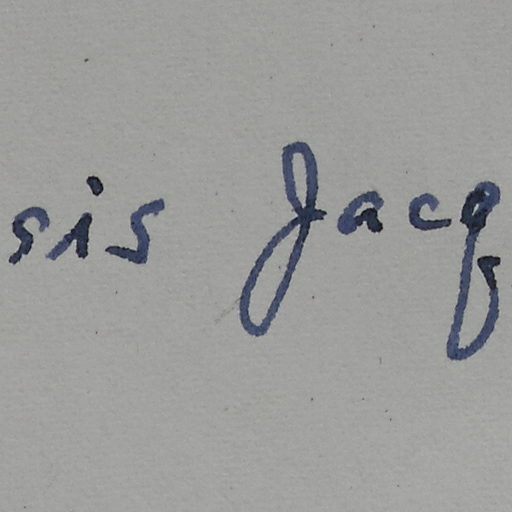 sis Jacq